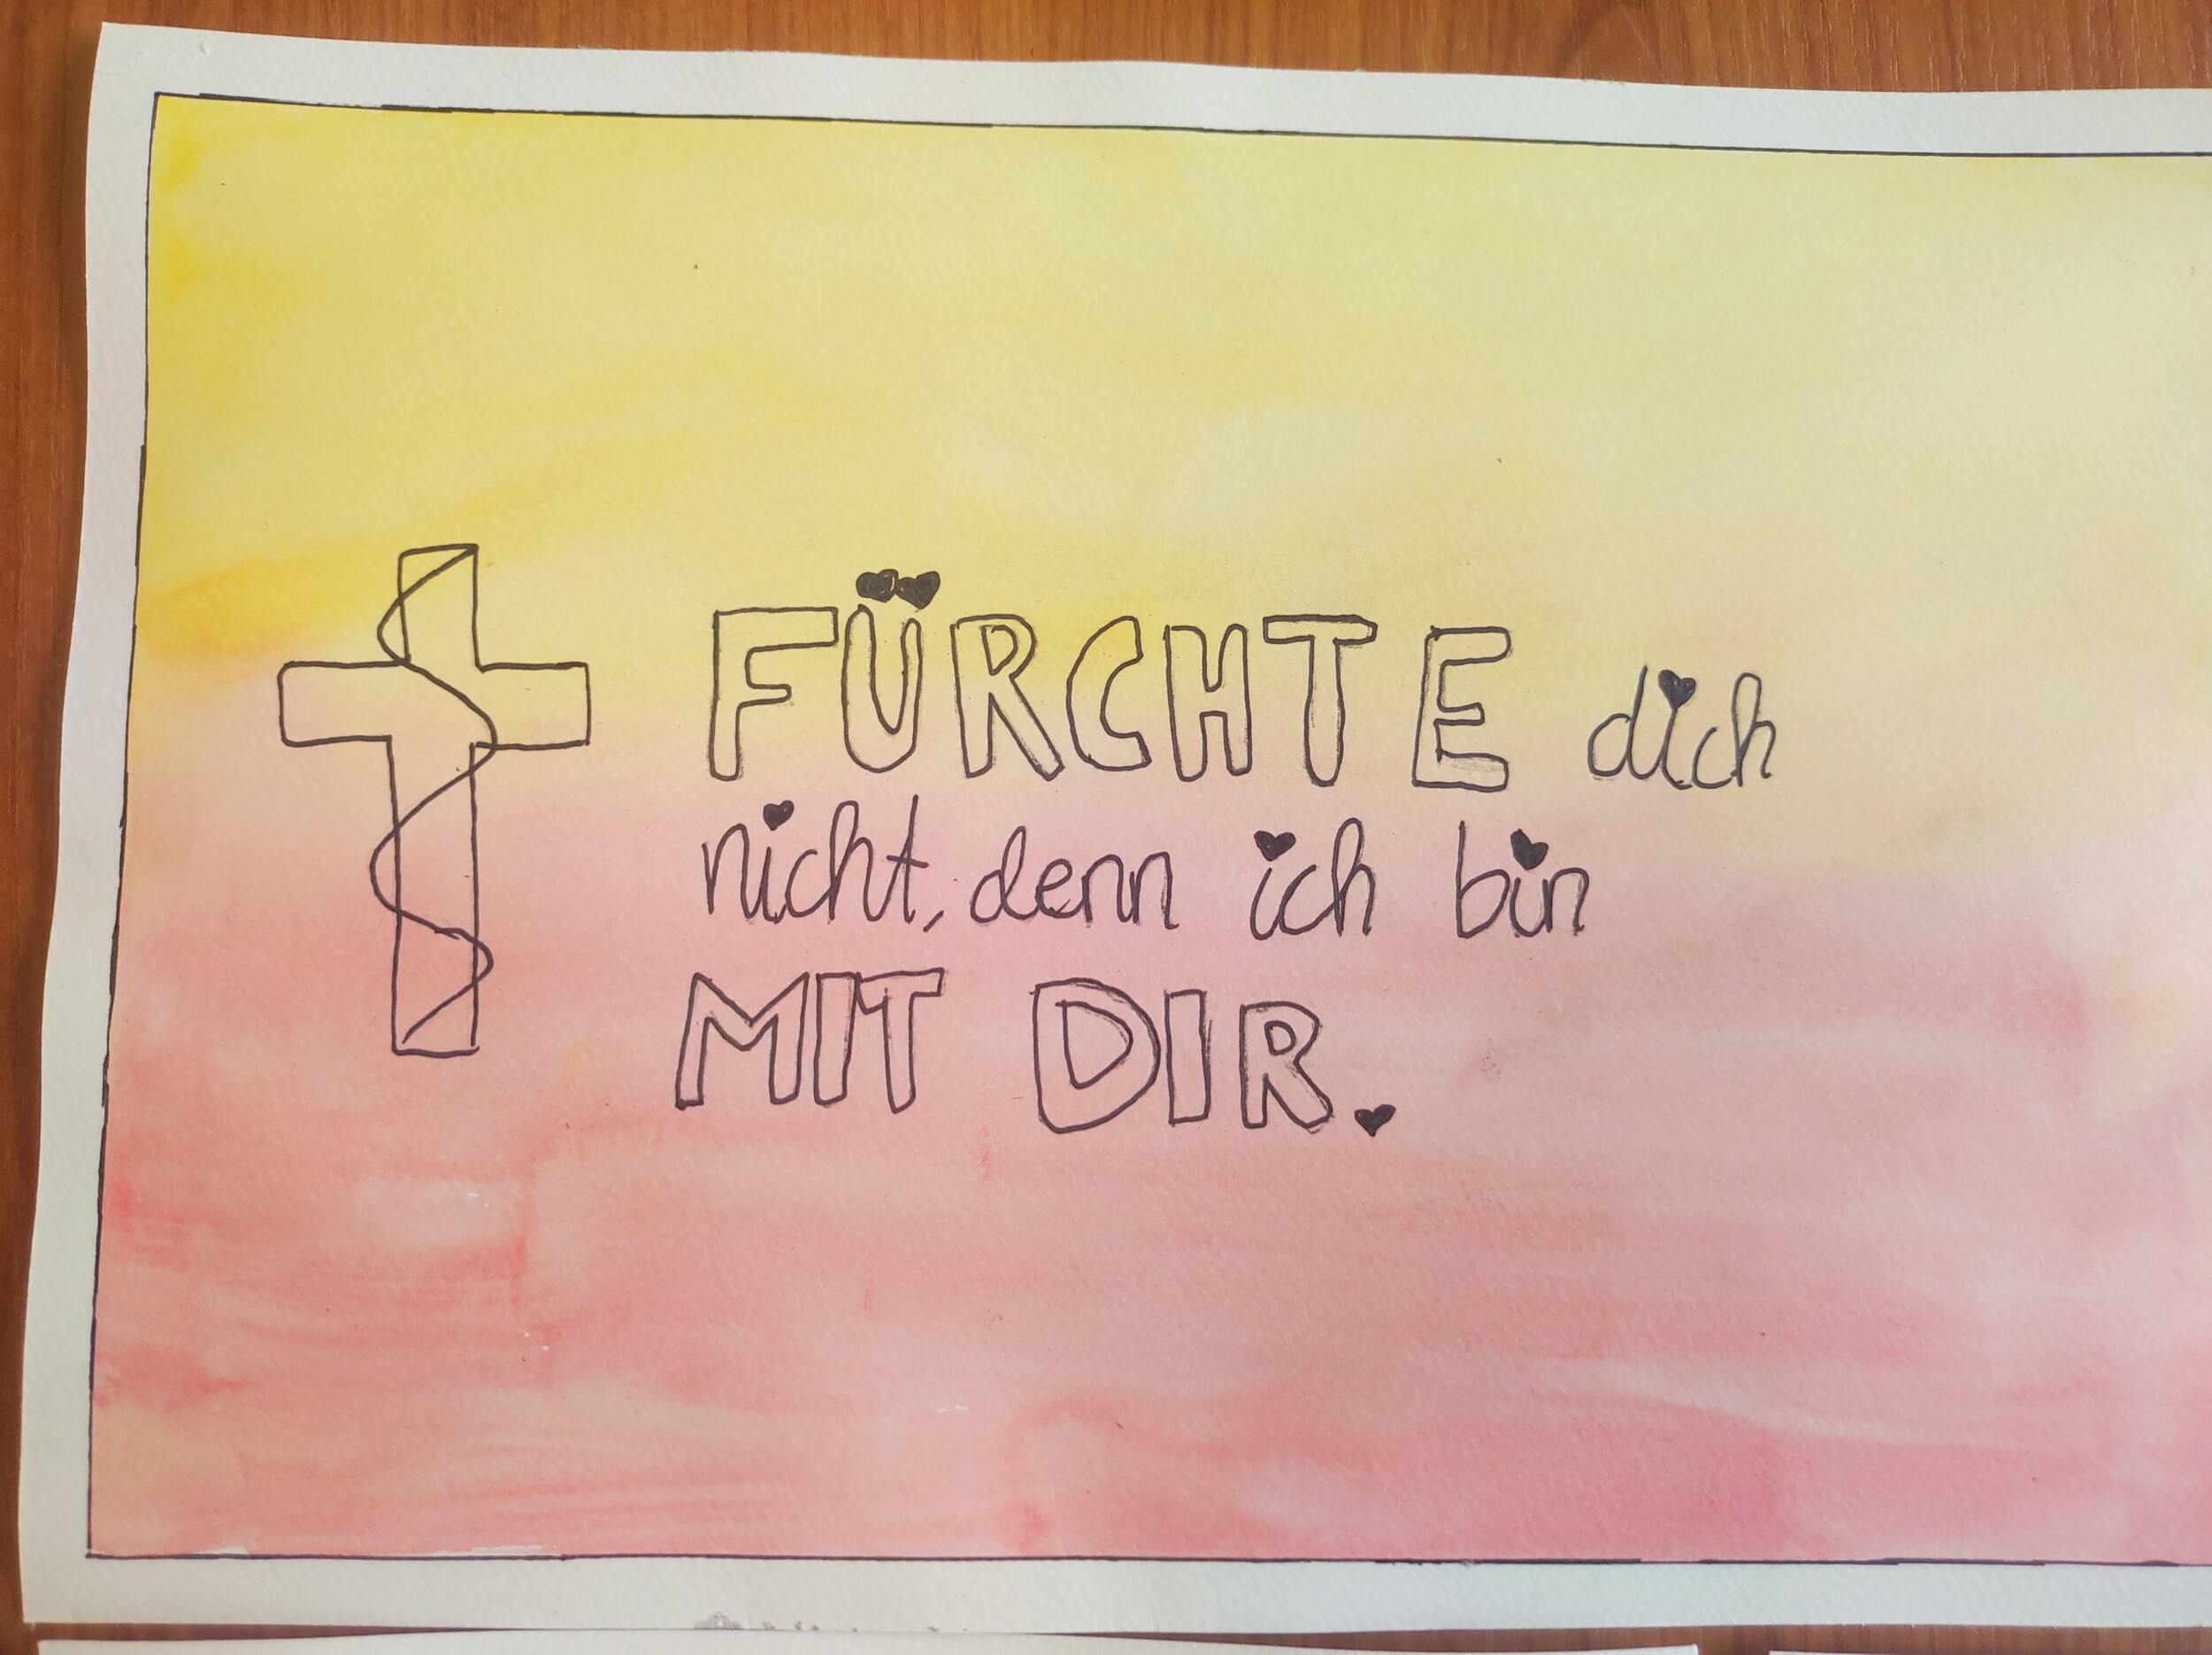 FÜRCHTE dich
nicht, denn ich bin
MIT DIR.